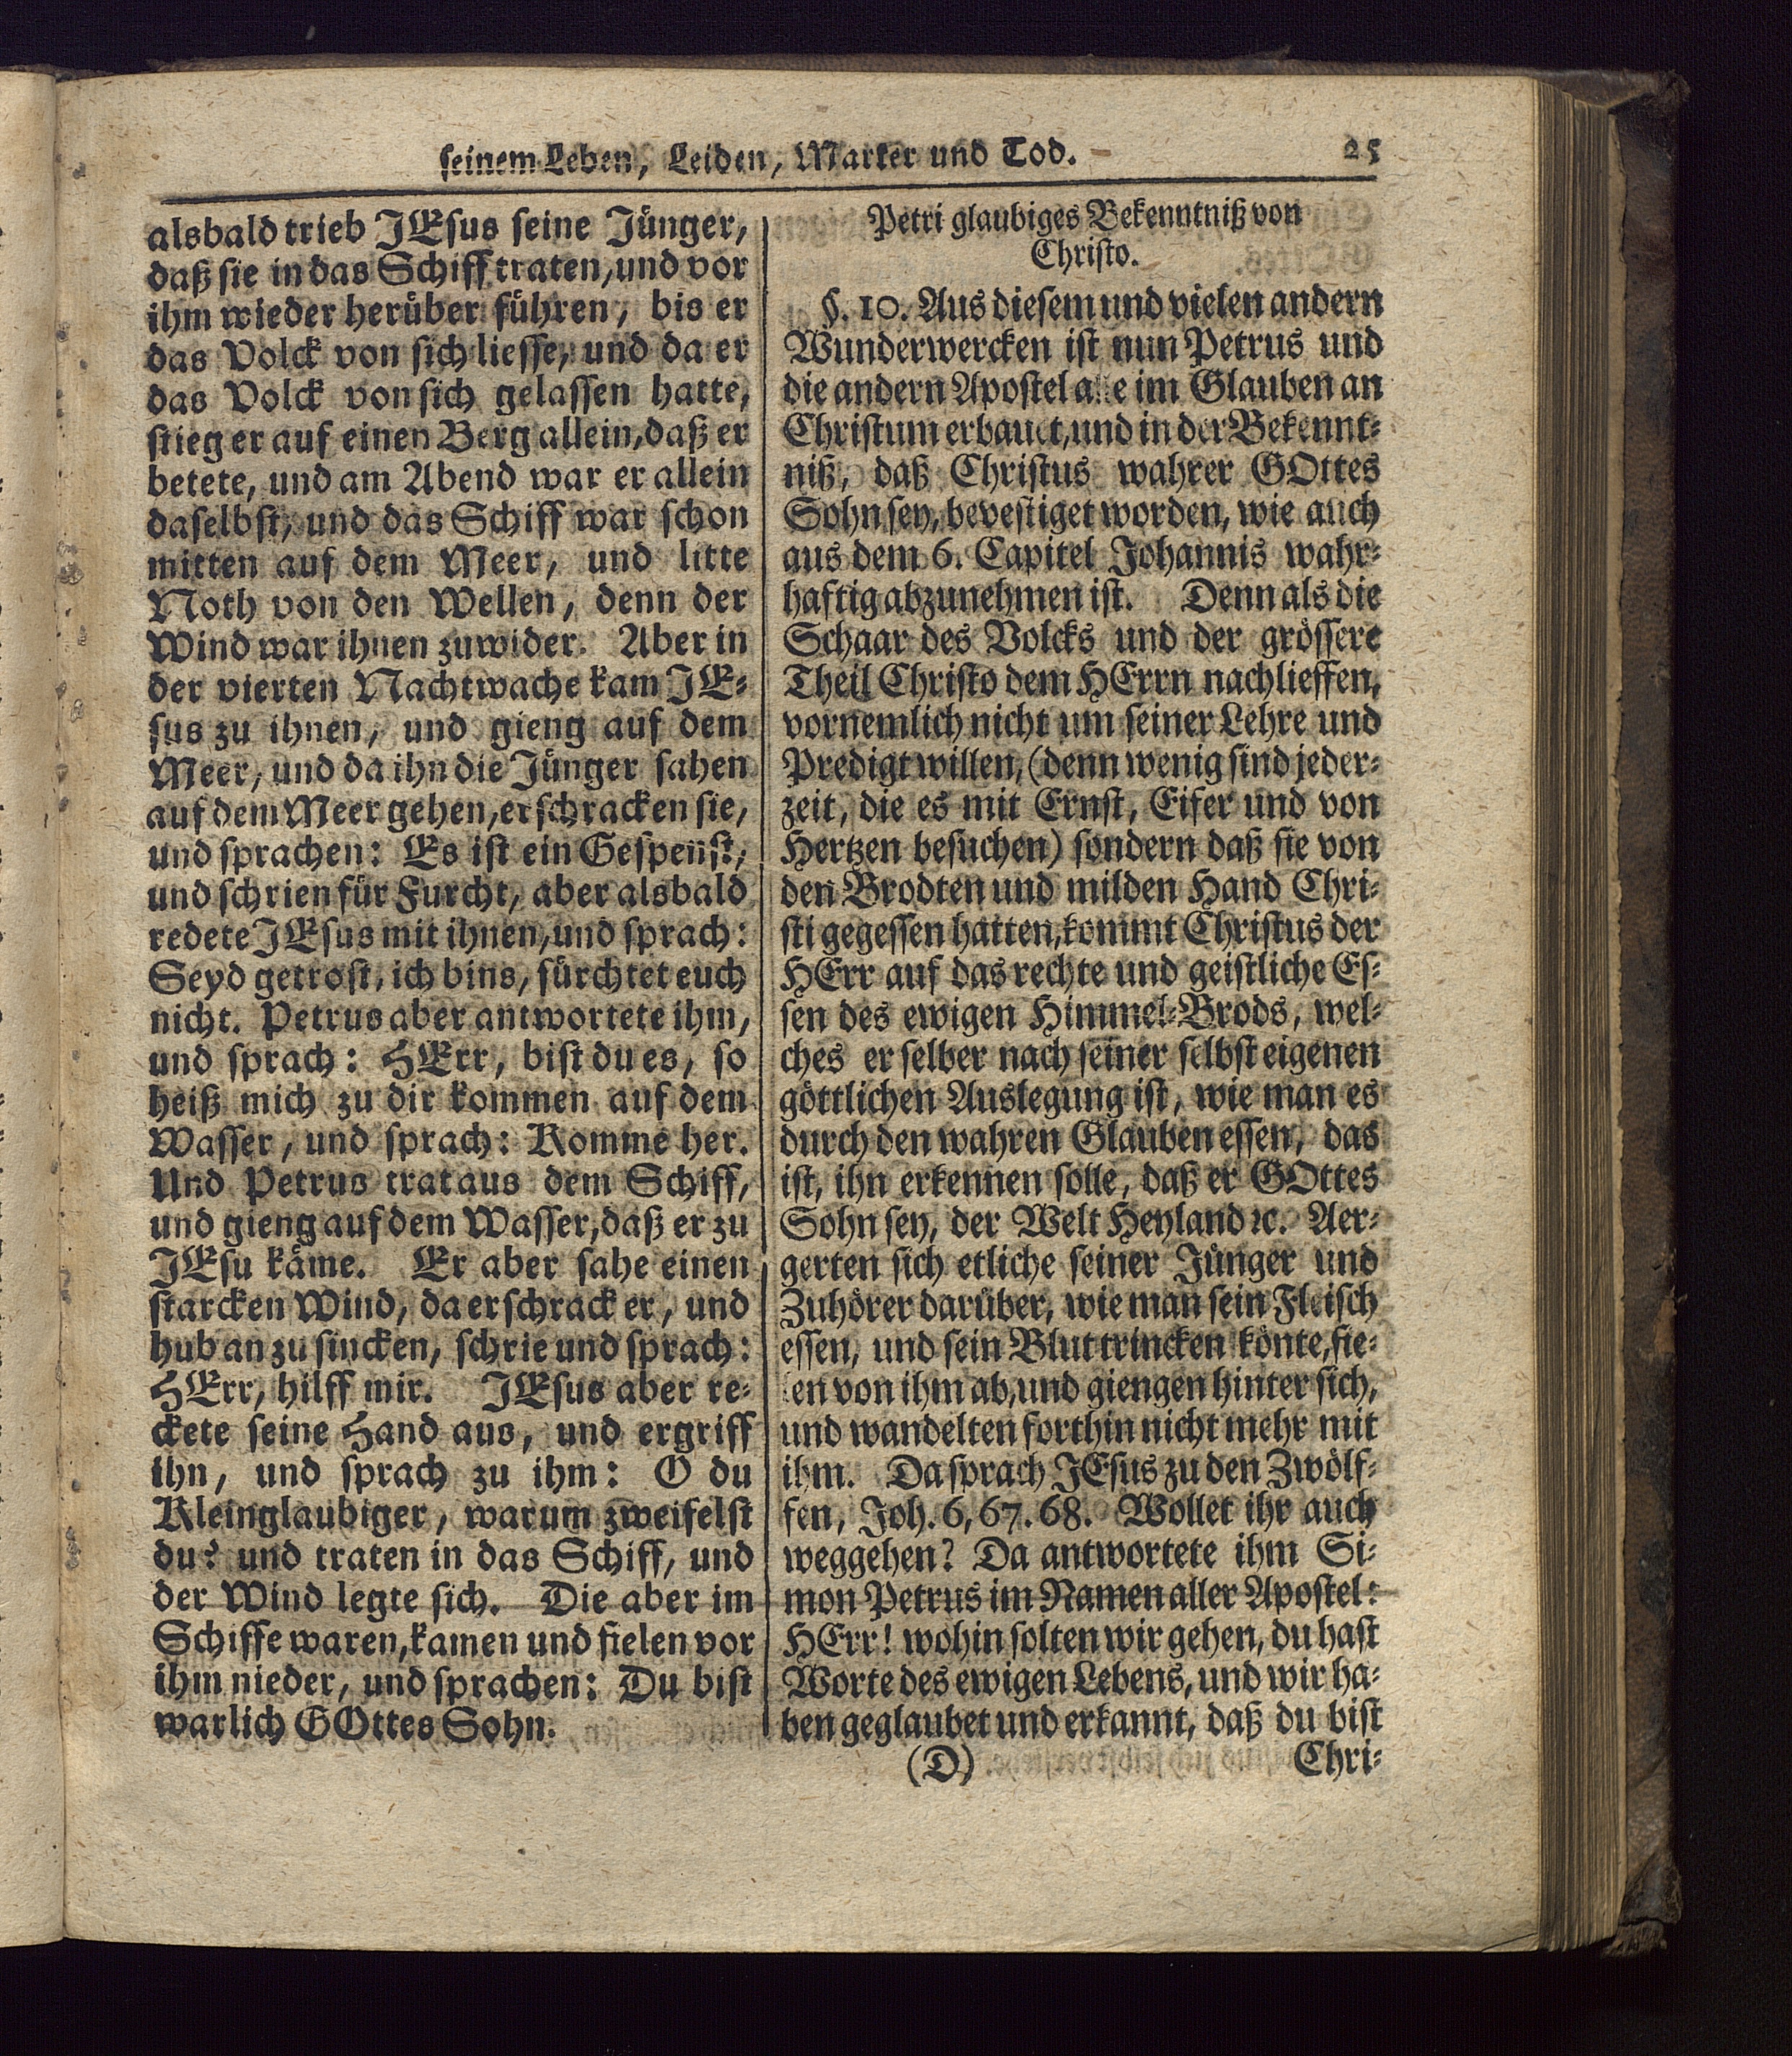 seinem Leben, Leiden, Marter und Tod. 25
alsbald trieb JEsus seine Jünger,
daß sie in das Schiff traten, und vor
ihm wieder herüber führen, bis er
das Volck von sich liesse, und da er
das Volck von sich gelassen hatte,
stieg er auf einen Berg allein, daß er
betete, und am Abend war er allein
daselbst, und das Schiff war schon
mitten auf dem Meer, und litte
Noth von den Wellen, denn der
Wind war ihnen zuwider. Aber in
der vierten Nachtwache kam JE-
sus zu ihnen, und gieng auf dem
Meer, und da ihn die Jünger sahen
auf dem Meer gehen, erschracken sie,
und sprachen: Es ist ein Gespenst,
und schrien für Furcht, aber alsbald
redete JEsus mit ihnen, und sprach:
Seyd getrost, ich bins, fürchtet euch
nicht. Petrus aber antwortete ihm,
und sprach: HErr, bist du es, so
heiß mich zu dir kommen auf dem
Wasser, und sprach: Komme her.
Und Petrus trat aus dem Schiff,
und gieng auf dem Wasser, daß er zu
JEsu käme. Er aber sahe einen
starcken Wind, da erschrack er, und
hub an zu sincken, schrie und sprach:
HErr, hilff mir. JEsus aber re-
ckete seine Hand aus, und ergriff
ihn, und sprach zu ihm: O du
Kleinglaubiger, warum zweifelst
du? und traten in das Schiff, und
der Wind legte sich. Die aber im
Schiffe waren, kamen und fielen vor
ihm nieder, und sprachen: Du bist
warlich GOttes Sohn.
Petri glaubiges Bekenntniß von
Christo.
§. 10. Aus diesem und vielen andern
Wunderwercken ist nun Petrus und
die andern Apostel alle im Glauben an
Christum erbauet, und in der Bekennt-
niß, daß Christus wahrer GOttes
Sohn sey, bevestiget worden, wie auch
aus dem 6. Capitel Johannis wahr-
haftig abzunehmen ist. Denn als die
Schaar des Volcks und der grössere
Theil Christo dem HErrn nachlieffen,
vornemlich nicht um seiner Lehre und
Predigt willen, (denn wenig sind jeder-
zeit, die es mit Ernst, Eifer und von
Hertzen besuchen) sondern daß sie von
den Brodten und milden Hand Chri-
sti gegessen hatten, kommt Christus der
HErr auf das rechte und geistliche Es-
sen des ewigen Himmel-Brods, wel-
ches er selber nach seiner selbst eigenen
göttlichen Auslegung ist, wie man es
durch den wahren Glauben essen, das
ist, ihn erkennen solle, daß er GOttes
Sohn sey, der Welt Heyland ꝛc. Aer-
gerten sich etliche seiner Jünger und
Zuhörer darüber, wie man sein Fleisch
essen, und sein Blut trincken könte, fie-
len von ihm ab, und giengen hinter sich,
und wandelten forthin nicht mehr mit
ihm. Da sprach JEsus zu den Zwölf-
fen, Joh. 6, 67. 68. Wollet ihr auch
weggehen? Da antwortete ihm Si-
mon Petrus im Namen aller Apostel:
HErr! wohin solten wir gehen, du hast
Worte des ewigen Lebens, und wir ha-
ben geglaubet und erkannt, daß du bist
(D) Chri-